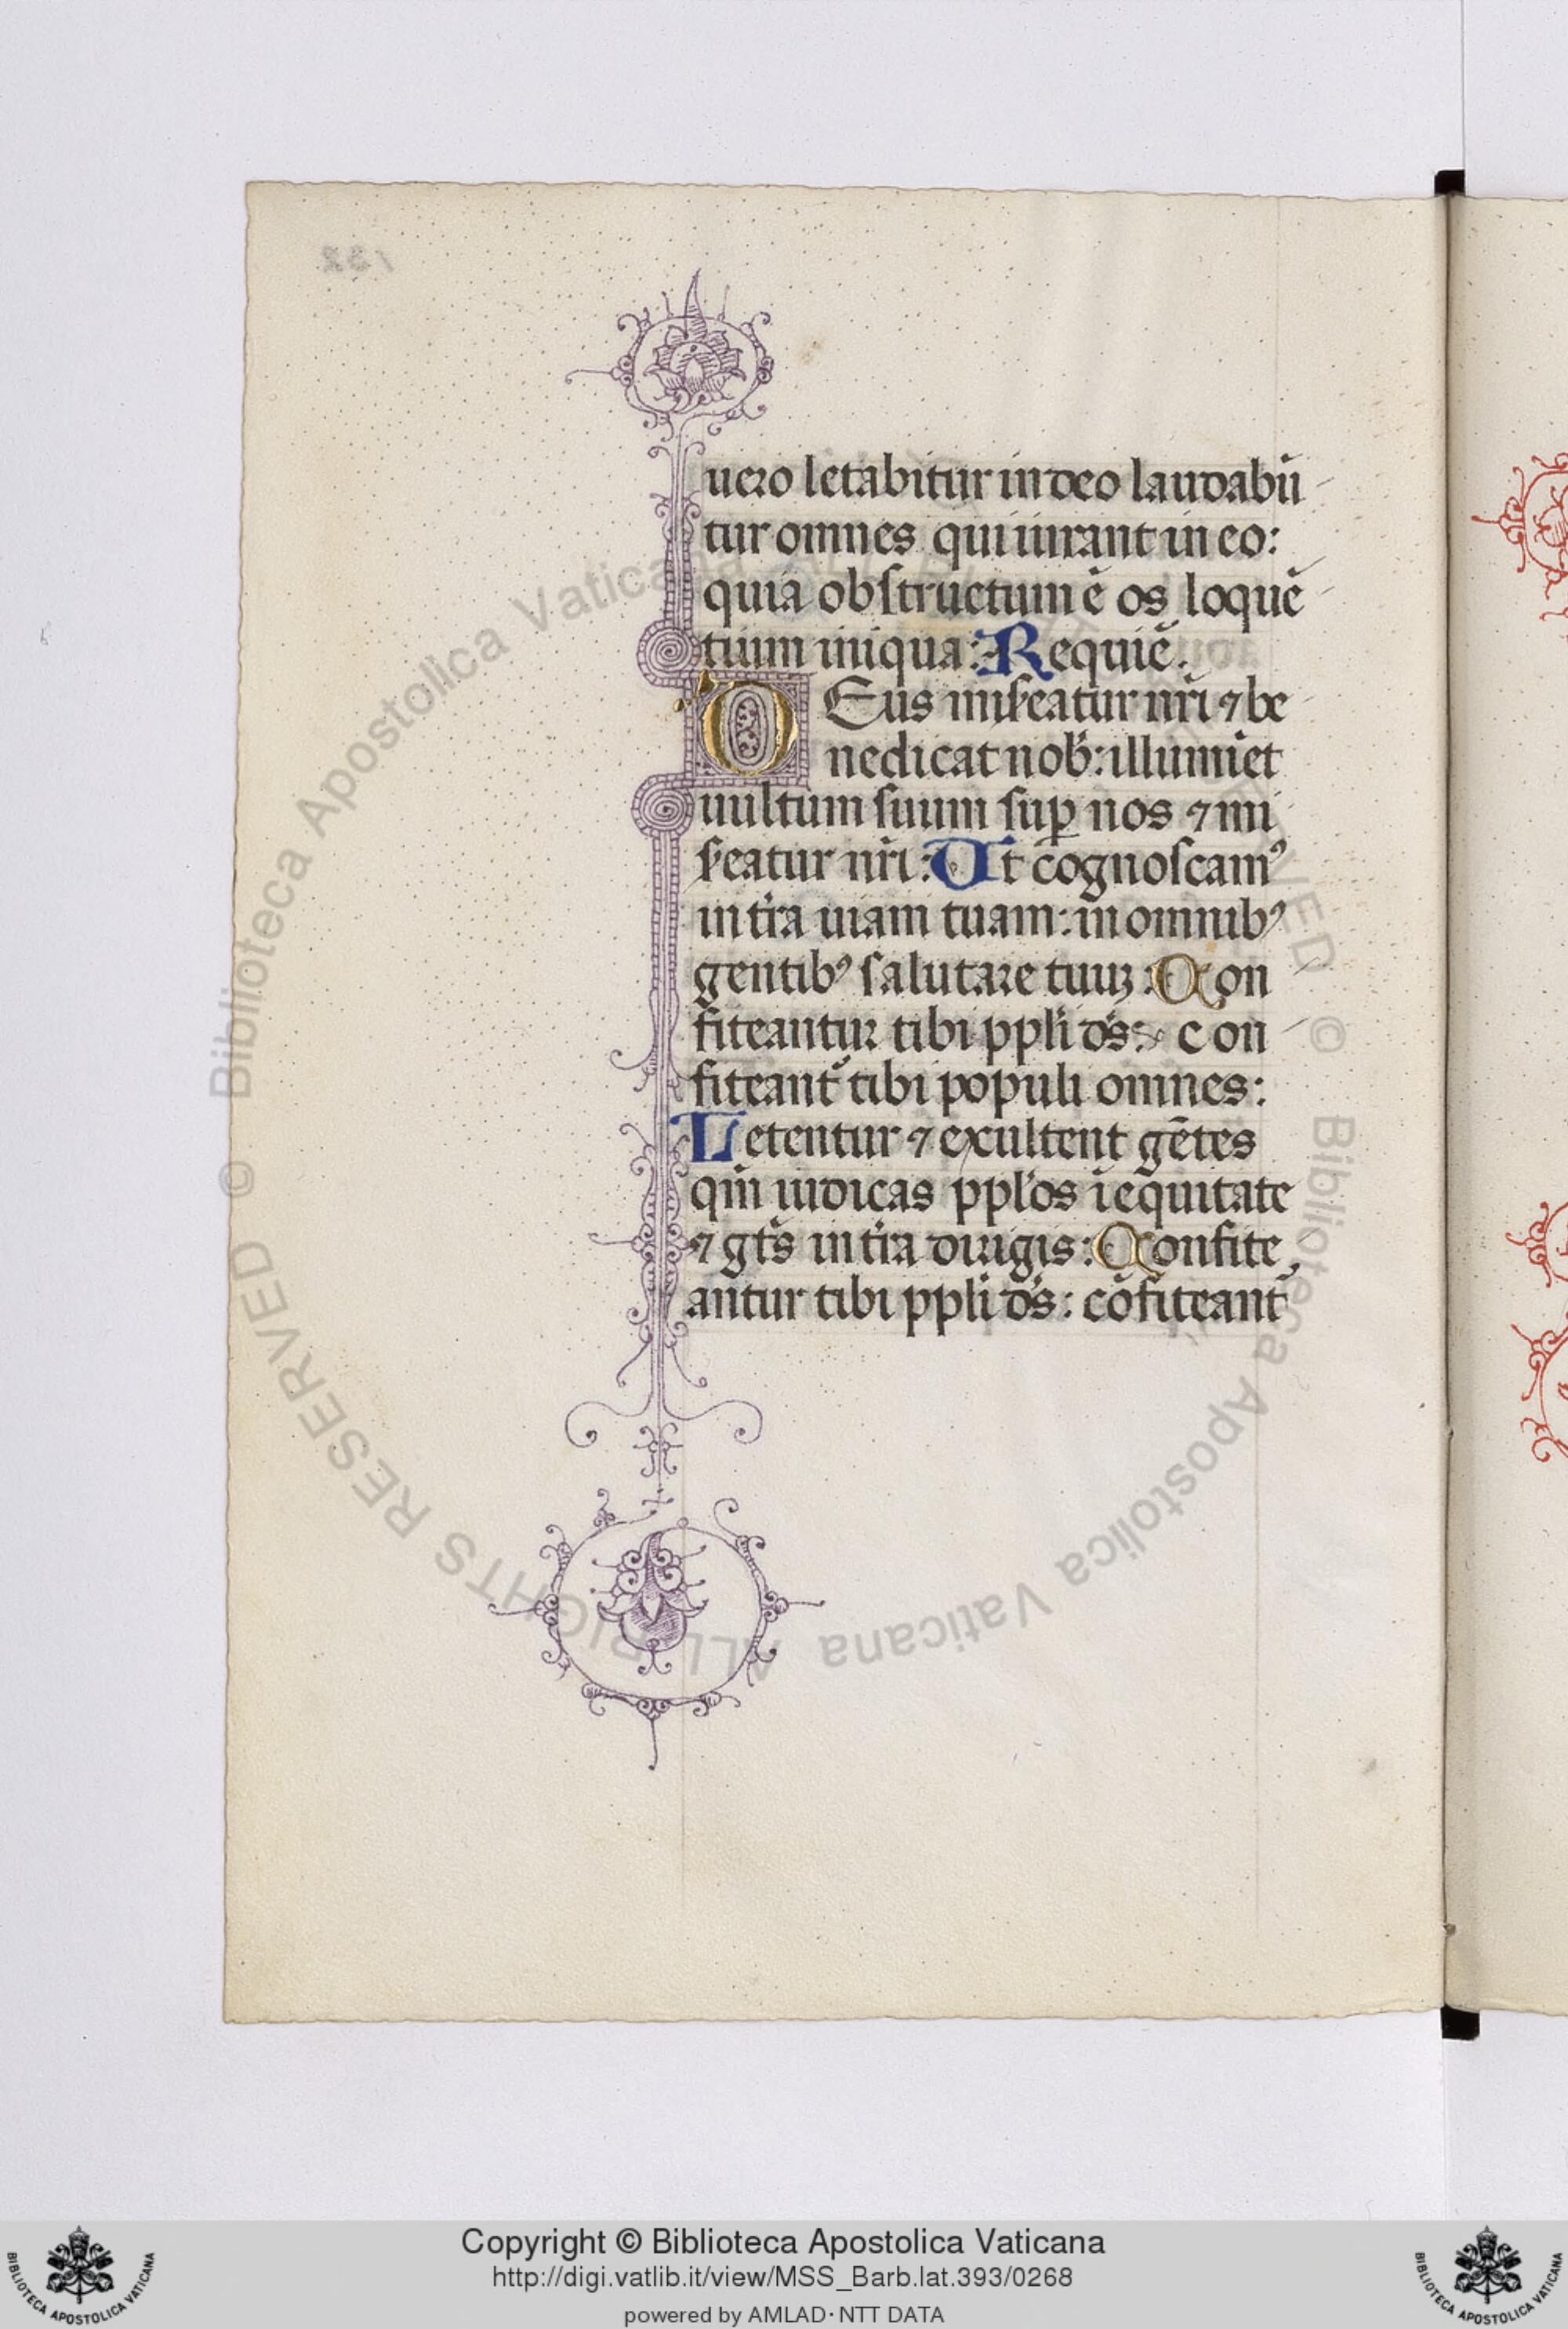 uero letabitur in deo laudabū
tur omnes qui iurant in eo:
quia obstructum ē os loquē
tium iniqua: Requiē.
DEus mis̄eatur nr̄i ⁊ be
nedicat nob̄: illumīet
uultum suum suꝑ nos ⁊ mi
s̄eatur nr̄i: Ut cognoscamꝰ
in tr̄a uiam tuam: in omnibꝰ
gentibꝰ salutare tuuꝫ: Con
fiteantur tibi ppl̄i ds̄: con
fiteant᷑ tibi populi omnes:
Letentur ⁊ exultent gētes
qm̄ iudicas ppl̄os ī equitate
⁊ gt̄s in tr̄a dirigis: Confite
antur tibi ppl̄i ds̄: cōfiteant᷑
132
© Biblioteca Apostolica Vaticana ALL RIGHTS RESERVED © Biblioteca Apostolica Vaticana ALL RIGHTS RESERVED
Copyright © Biblioteca Apostolica Vaticana
http://digi.vatlib.it/view/MSS_Barb.lat.393/0268
powered by AMLAD·NTT DATA
BIBLIOTECA APOSTOLICA VATICANA
BIBLIOTECA APOSTOLICA VATICANA